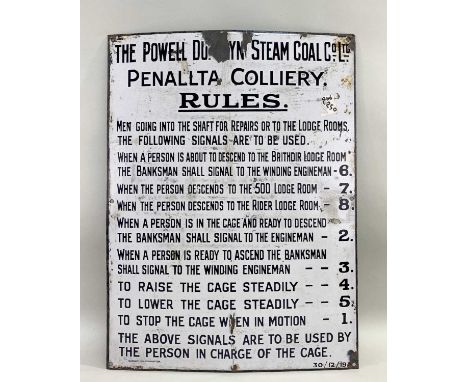 THE POWELL DUFFRYN STEAM COAL CO. LTD
PENALLTA COLLIERY.
RULES.
MEN GOING INTO THE SHAFT FOR REPAIRS OR TO THE LODGE ROOMS,
THE FOLLOWING SIGNALS ARE TO BE USED.
WHEN A PERSON IS ABOUT TO DESCEND TO THE BRITHDIR LODGE ROOM
THE BANKSMAN SHALL SIGNAL TO THE WINDING ENGINEMAN - 6.
WHEN THE PERSON DESCENDS TO THE 500 LODGE ROOM - 7.
WHEN THE PERSON DESCENDS TO THE RIDER LODGE ROOM, - 8.
WHEN A PERSON IS IN THE CAGE AND READY TO DESCEND
THE BANKSMAN SHALL SIGNAL TO THE ENGINEMAN - 2.
WHEN A PERSON IS READY TO ASCEND THE BANKSMAN
SHALL SIGNAL TO THE WINDING ENGINEMAN - - 3.
TO RAISE THE CAGE STEADILY - - 4.
TO LOWER THE CAGE STEADILY - - 5.
TO STOP THE CAGE WHEN IN MOTION - 1.
THE ABOVE SIGNALS ARE TO BE USED BY
THE PERSON IN CHARGE OF THE CAGE.
30/12/19